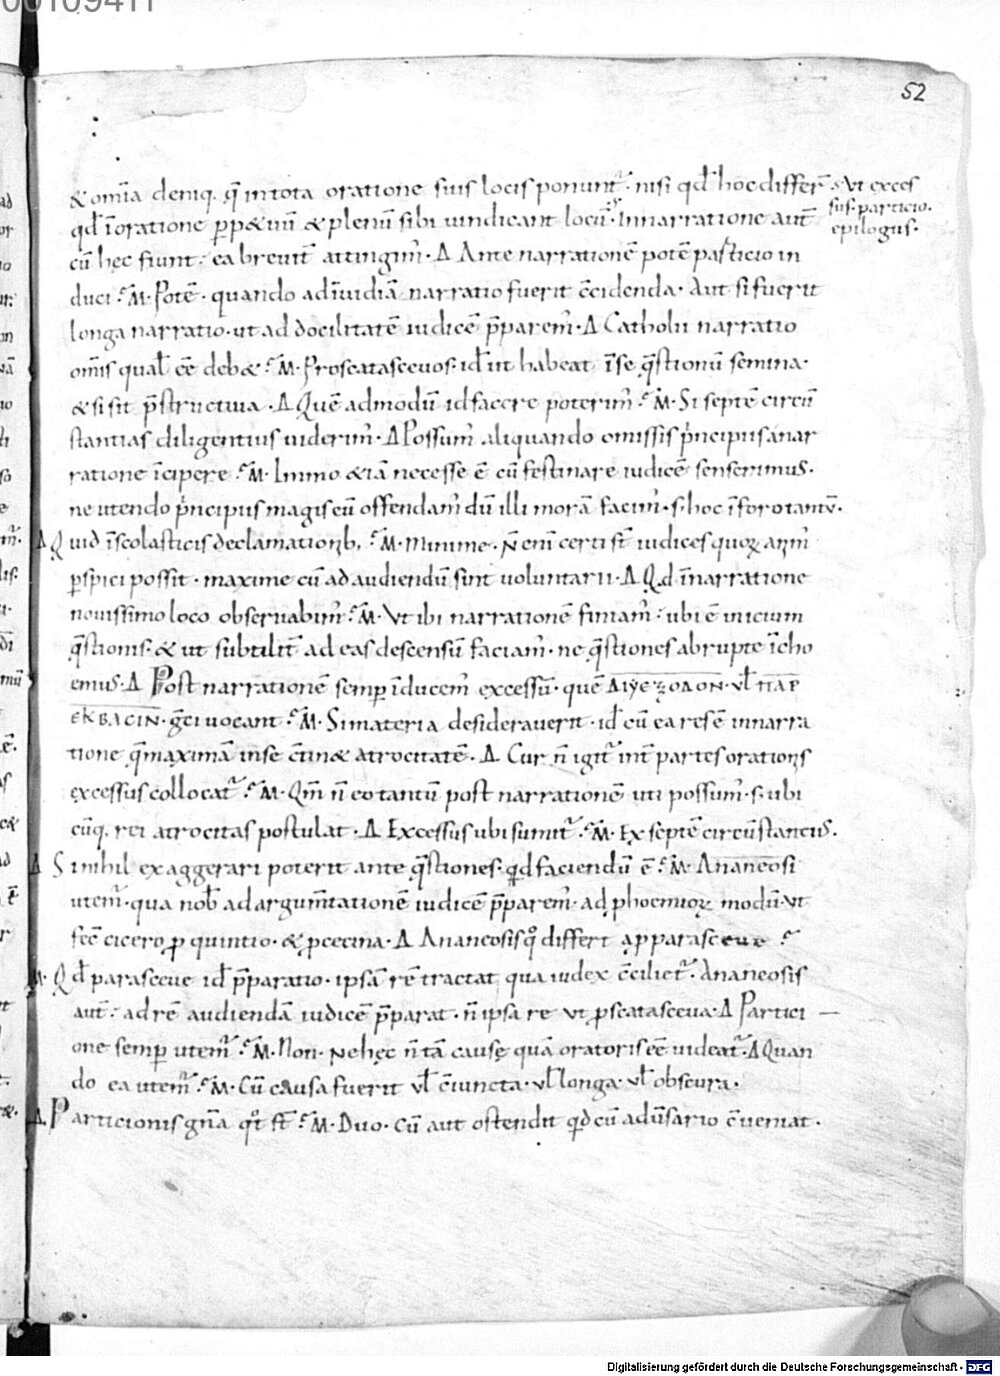 00109411
52
&om̄ia deniq. q̄ intota oratione suis locis ponunt᷑. nisi qđ hoc differ̄
qđ īoratione ꝑp&uū & plenū sibi uindicant locū. Innarratione aut̄
cū hęc fiunt. ea breuit̄ attingim᷑. Δ Ante narrationē potē particio in
duci ? M. Potē. quando adīuidiā narratio fuerit c̄cidenda. Aut si fuerit
longa narratio. ut ad docilitatē iudicē p̄parem᷑. Δ Catholu narratio
om̄is qual̄ eē deb& ? M. Proscatasceuos. id ut habeat īse q̄stionū semina.
& si sit p̄structiua. Δ Quē admodū id facere poterim᷑ ? M. Si septē circū
stantias diligentius uiderim᷑. Δ Possum᷑ aliquando omissis p̄ncipiis anar
ratione īcipere ? M. Immo &iā necesse ē cū festinare iudicē senserimus.
ne utendo p̄ncipiis magis eū offendam᷑ dū illi morā facim᷑. s. hoc īforo tantū.
Δ Quid īscolasticis declamationib, ? M. Minime. N̄ enī certi st̄ iudices quoꝝ anim᷑
ꝑspici possit. maxime cū ad audiendū sint uoluntarii. Δ Qd īnarratione
nouissimo loco obseruabim᷑ ? M. Vt ibi narrationē finiam᷑. ubi ē inicium
q̄stionis. & ut subtilit̄ ad eas descensū faciam᷑. ne q̄stiones abrupte īcho
emus. Δ Post narrationē semꝑ īducem᷑ excessū. quē ΔΙΥЄΖΟΔΟΝ. ul̄ ΠΑΡ
ЄΚΒΑCΙΝ. gr̄eci uocant ? M. Si materia desiderauerit. id cū ea res ē innarra
tione q̄ maximā inse c̄tin& atrocitatē. Δ Cur n̄ igit᷑ int̄ partes orationis
excessus collocat᷑ ? M. Qm̄ n̄ eo tantū post narrationē uti possum᷑. s. ubi
cūq. rei atrocitas postulat. Δ Excessus ubi sumit᷑ ? M. Ex septē circūstanciis.
Δ Si nihil exaggerari poterit ante q̄stiones. quid faciendū ē ? M. Ananeosi
utem᷑. qua nob̄ ad argum̄tationē iudicē p̄parem᷑. ad phoemioꝝ modū. ut
fec̄ cicero ꝓ quintio. & ꝓ cecina. Δ Ananeosis qͦ differt apparasceue ?
M. Qđ parasceue id p̄paratio. ipsā rē tractat qua iudex c̄ciliet᷑. Ananeosis
aut̄. ad rē audiendā iudicē p̄parat. n̄ ipsa re ut ꝓscatasceua. Δ Partici
one semꝑ utem᷑ ? M. Non. Ne hęc n̄ tā causę quā oratoris eē uideat᷑. Δ Quan
do ea utem᷑ ? M. Cū causa fuerit ul̄ c̄iuncta. ul̄ longa. ul̄ obscura.
Δ. Particionis gn̄a qͦt st̄ ? M. Duo. Cū aut ostendit quid cū adūsario c̄ueniat.
s. Vt exces
sus. particio.
epilogus.
Digitalisierung gefördert durch die Deutsche Forschungsgemeinschaft - DFG